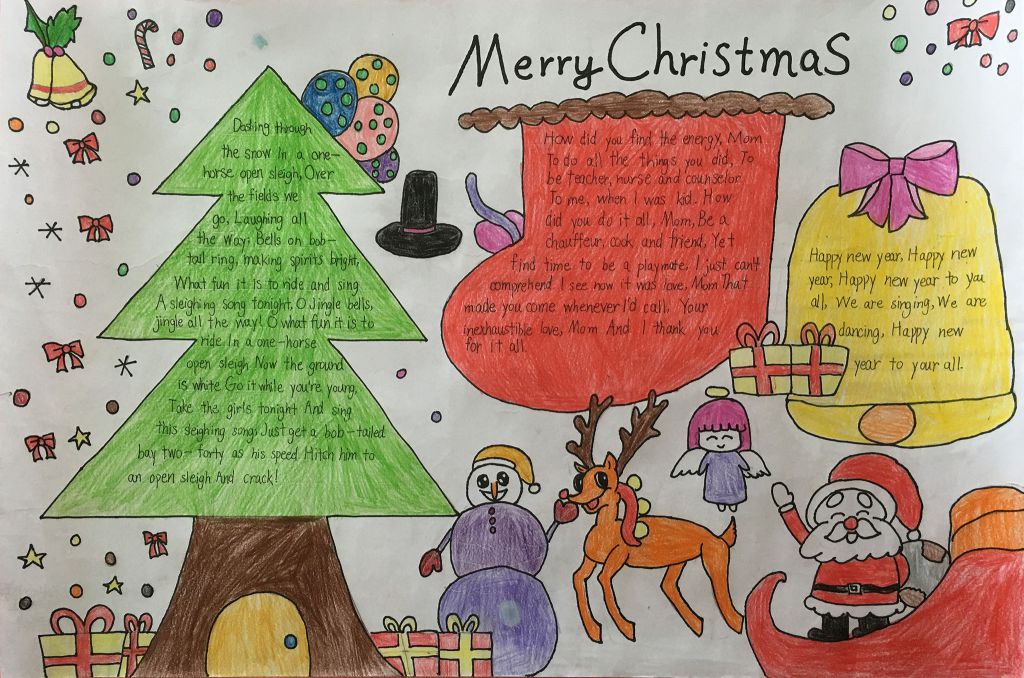 Merry Christmas
Dashing through
the snow In a one-
horse open sleigh, Over
the fields we
go, Laughing all
the way; Bells on bob-
tail ring, making spirits bright,
What fun it is to ride and sing
A sleighing song tonight, O Jingle bells,
jingle all the way! O what fun it is to
ride In a one-horse
open sleigh Now the ground
is white Go it while you're young,
Take the girls tonight And sing
this sleighing song; Just get a bob-tailed
bay two-forty as his speed Hitch him to
an open sleigh And crack!
How did you find the energy, Mom
To do all the things you did, To
be teacher, nurse and counselor
To me, when I was kid. How
did you do it all, Mom, Be a
chauffeur, cook, and friend, Yet
find time to be a playmate, I just can't
comprehend I see now it was love, Mom That
made you come whenever I'd call, Your
inexhaustible love, Mom And I thank you
for it all.
Happy new year, Happy new
year, Happy new year to you
all, We are singing, We are
dancing, Happy new
year to your all.